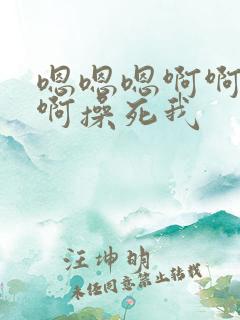 嗯嗯嗯啊啊
啊操死我
汪坤明
未经同意禁止转载